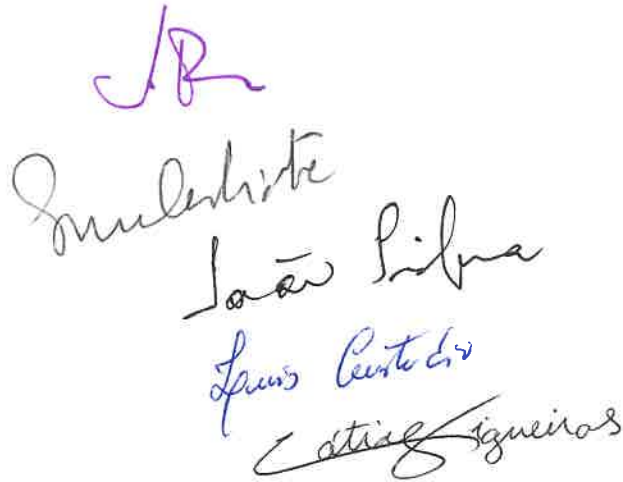 JR
João Silva
Luis Custódio
Cátia Figueiras